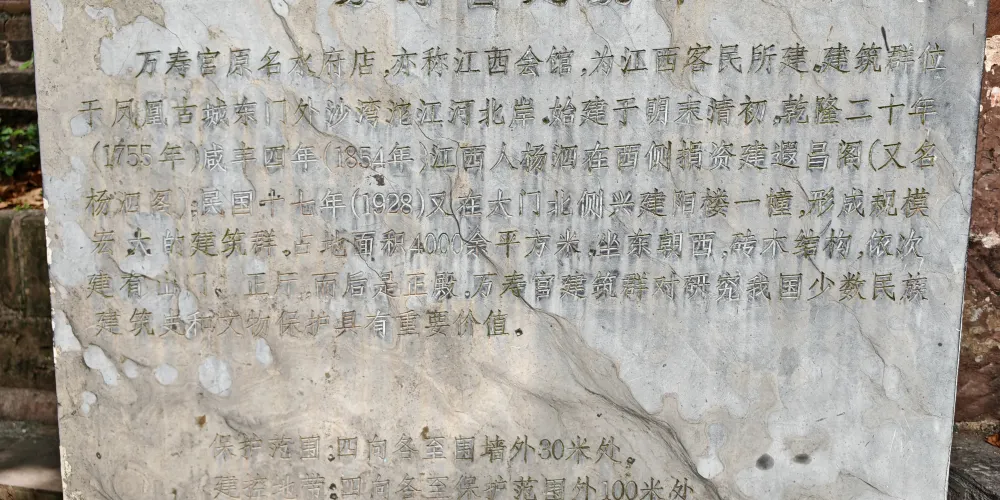 万寿宫原名水府店，亦称江西会馆，为江西客民所建。建筑群位
于凤凰古城东门外沙湾沱江河北岸。始建于明末清初，乾隆二十年
(1755年)咸丰四年(1854年)江西人杨泗在西侧捐资建遐昌阁(又名
杨泗阁)；民国十七年(1928)又在大门北侧兴建阳楼一幢，形成规模
宏大的建筑群。占地面积4000余平方米，坐东朝西，砖木结构，依次
建有山门、正厅，而后是正殿，万寿宫建筑群对研究我国少数民族
建筑史和文物保护具有重要价值。
保护范围：四向各至围墙外30米处。
建控地带：四向各至保护范围外100米处